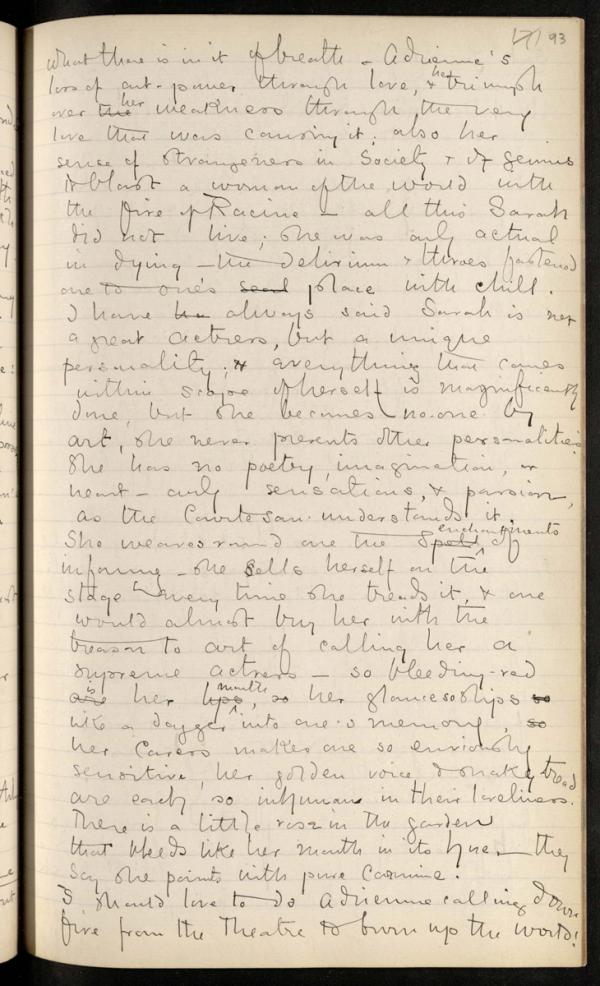 171 93
what there is in it of breath – Adrienne's
loss of art-power through love, & her triumph
over the her weakness through the very
love that was causing it; also her
sense of strangeness in Society & of genius
to blast a woman of the world with
the fire of Racine – all this Sarah
did not live; she was only actual
in dying – the delirium & throes fastened
one to one's seat place with chill.
I have always said Sarah is not
a great actress, but a unique
personality; & everything that comes
within scope of herself is magnificently
done, but she becomes no-one by
art, she never presents other personalities.
She has no poetry, imagination, or
heart – only sensations, & passion,
as the Courtesan understands it.
She weaves round one the spell enchantments of
– she sells herself on the
stage every time she treads it, & one
would almost buy her with the
treason to art of calling her a
supreme actress – so bleeding-red
are is her lips mouth, so her glance so slips so
like a dagger into one's memory, so
her caress makes one so enviously
sensitive, her golden voice & snaky tread
are each so inhuman in their loveliness.
There is a little rose in the garden
that bleeds like her mouth in its hue – they
say she paints with pure Carmine.
I should love to do Adrienne calling down
fire from the Theatre to burn up the world!